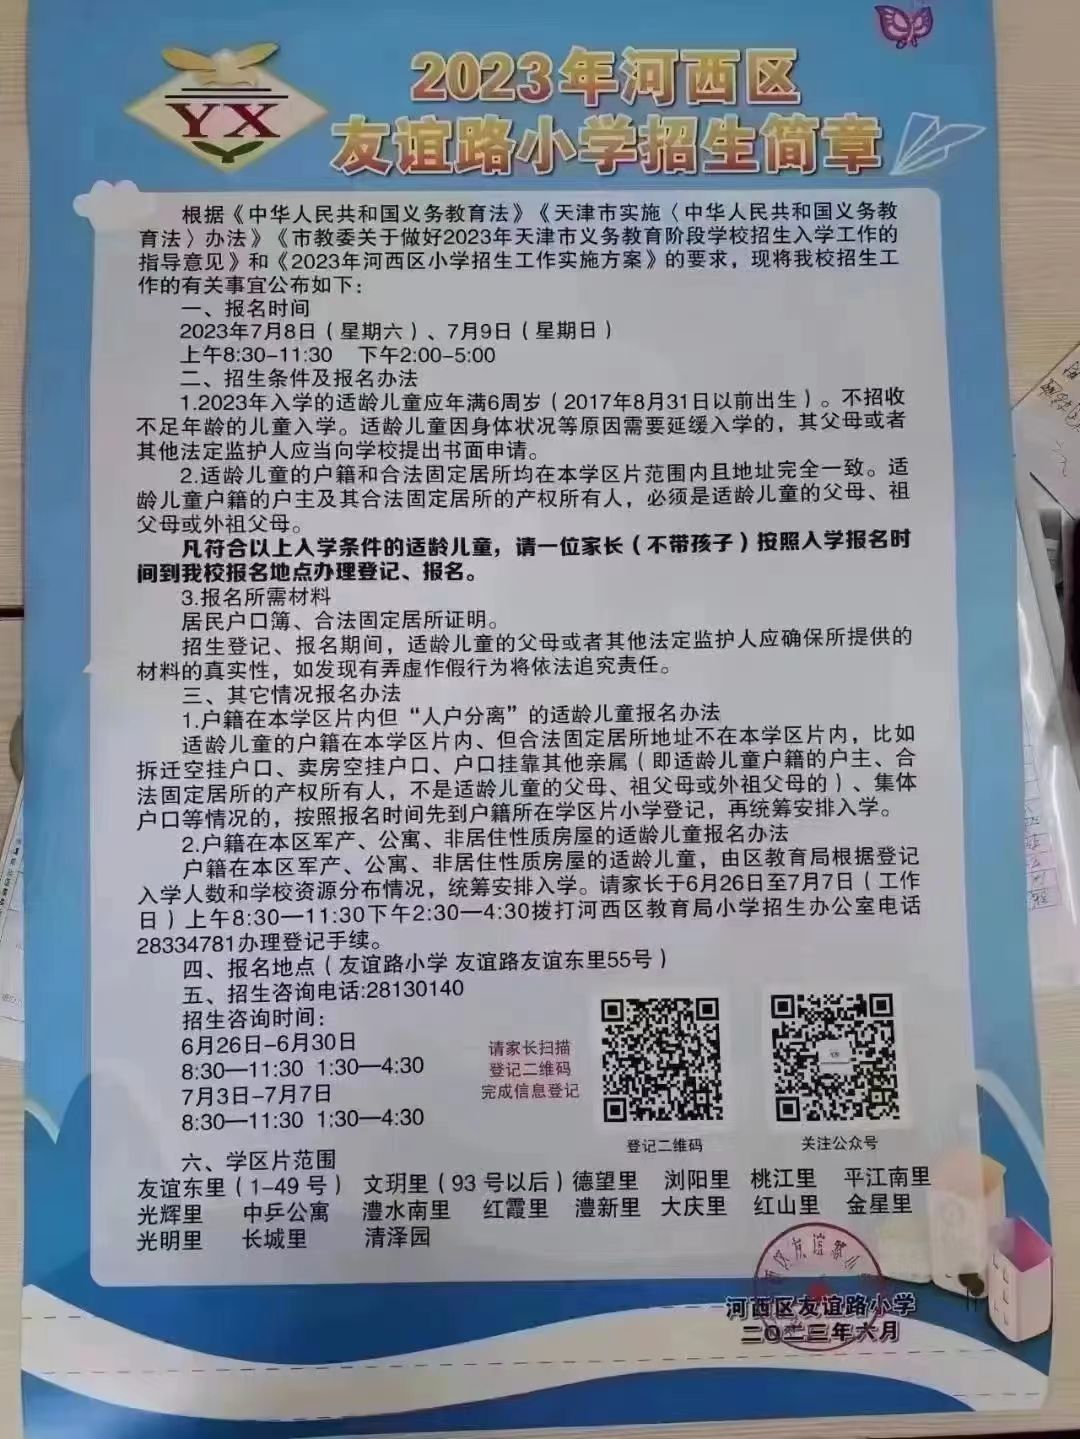 YX
2023年河西区
友谊路小学招生简章
根据《中华人民共和国义务教育法》《天津市实施〈中华人民共和国义务教
育法〉办法》《市教委关于做好2023年天津市义务教育阶段学校招生入学工作的
指导意见》和《2023年河西区小学招生工作实施方案》的要求，现将我校招生工
作的有关事宜公布如下：
一、报名时间
2023年7月8日（星期六）、7月9日（星期日）
上午8:30-11:30 下午2:00-5:00
二、招生条件及报名办法
1.2023年入学的适龄儿童应年满6周岁（2017年8月31日以前出生）。不招收
不足年龄的儿童入学。适龄儿童因身体状况等原因需要延缓入学的，其父母或者
其他法定监护人应当向学校提出书面申请。
2.适龄儿童的户籍和合法固定居所均在本学区片范围内且地址完全一致。适
龄儿童户籍的户主及其合法固定居所的产权所有人，必须是适龄儿童的父母、祖
父母或外祖父母。
凡符合以上入学条件的适龄儿童，请一位家长（不带孩子）按照入学报名时
间到我校报名地点办理登记、报名。
3.报名所需材料
居民户口簿、合法固定居所证明。
招生登记、报名期间，适龄儿童的父母或者其他法定监护人应确保所提供的
材料的真实性，如发现有弄虚作假行为将依法追究责任。
三、其它情况报名办法
1.户籍在本学区片内但“人户分离”的适龄儿童报名办法
适龄儿童的户籍在本学区片内、但合法固定居所地址不在本学区片内，比如
拆迁空挂户口、卖房空挂户口、户口挂靠其他亲属（即适龄儿童户籍的户主、合
法固定居所的产权所有人，不是适龄儿童的父母、祖父母或外祖父母的）、集体
户口等情况的，按照报名时间先到户籍所在学区片小学登记，再统筹安排入学。
2.户籍在本区军产、公寓、非居住性质房屋的适龄儿童报名办法
户籍在本区军产、公寓、非居住性质房屋的适龄儿童，由区教育局根据登记
入学人数和学校资源分布情况，统筹安排入学。请家长于6月26日至7月7日（工作
日）上午8:30—11:30下午2:30—4:30拨打河西区教育局小学招生办公室电话
28334781办理登记手续。
四、报名地点（友谊路小学 友谊路友谊东里55号）
五、招生咨询电话:28130140
招生咨询时间：
6月26日-6月30日
8:30—11:30 1:30—4:30
7月3日-7月7日
8:30—11:30 1:30—4:30
请家长扫描
登记二维码
完成信息登记
登记二维码
关注公众号
六、学区片范围
友谊东里（1-49 号） 文玥里（93 号以后）德望里 浏阳里 桃江里 平江南里
光辉里 中乒公寓 澧水南里 红霞里 澧新里 大庆里 红山里 金星里
光明里 长城里 清泽园
河西区友谊路小学
二〇二三年六月